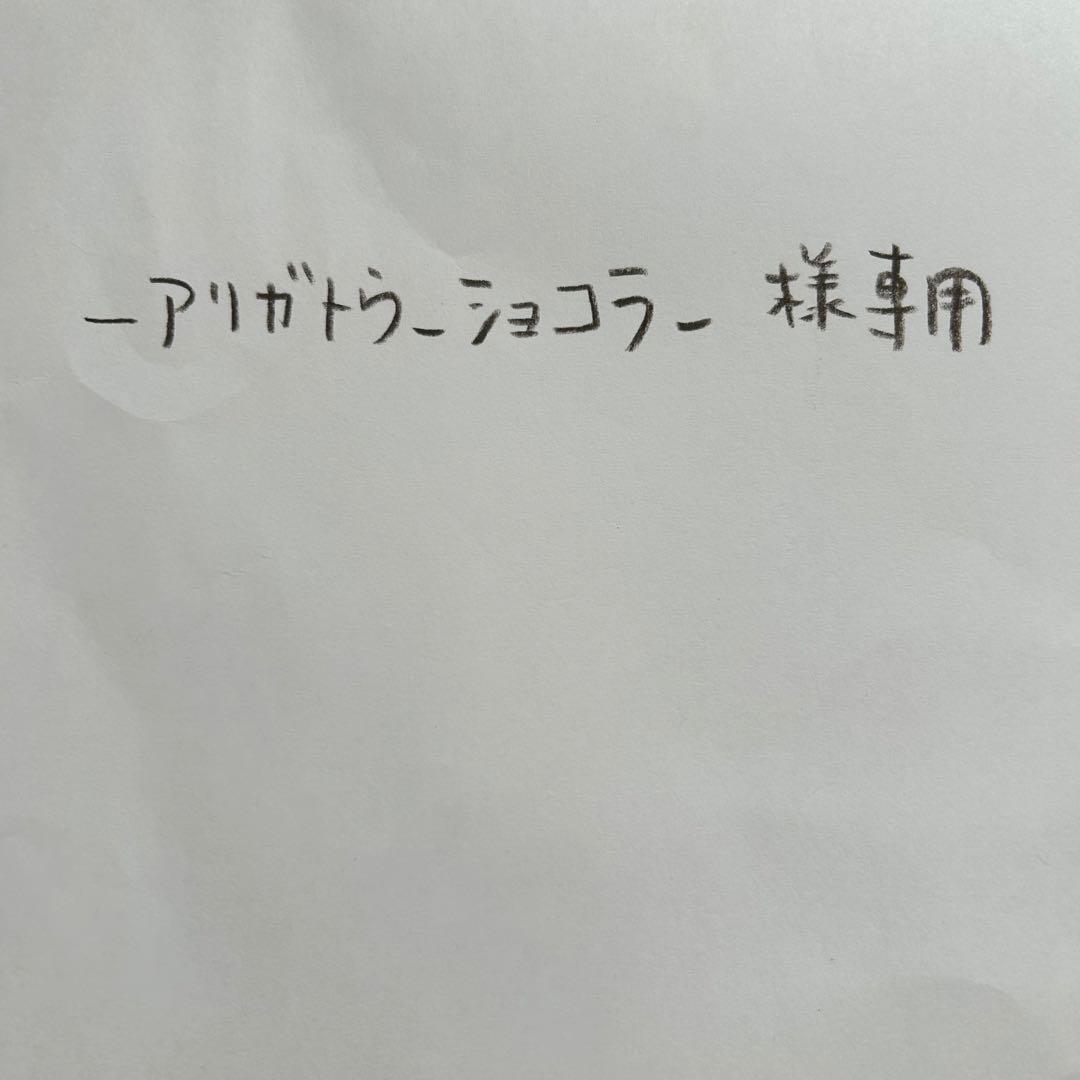 _アリガトウ_ショコラ_ 様専用